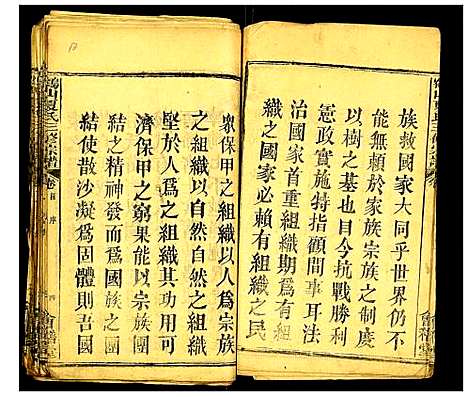 族救國家大同乎世界仍不
能無賴於家族宗族之制度
以樹之基也目今抗戰勝利
行憲實施特指顧間事耳法
治國家首重組織期爲有組
織之國家必賴有組織之民
衆保甲之組織以人爲宗族
之組織以自然自然之組織
堅於人爲之組織其功可以
濟保甲之窮果能以宗族團
結之精神發而爲國族之團
結使散沙凝爲固體則吾國
夏氏三修宗譜
卷首 序
四
會稽堂